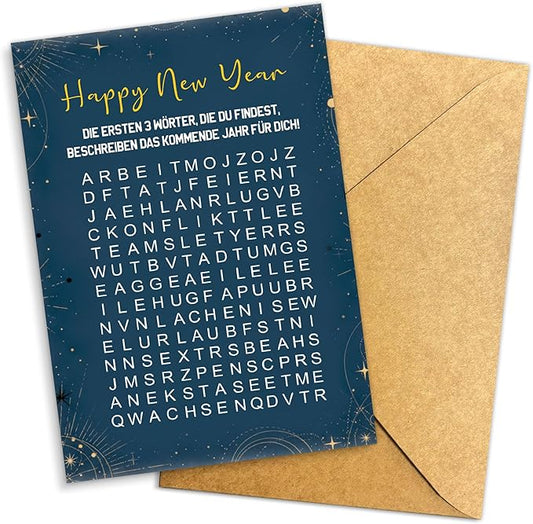 Happy New Year
DIE ERSTEN 3 WÖRTER, DIE DU FINDEST,
BESCHREIBEN DAS KOMMENDE JAHR FÜR DICH!
A R B E I T M O J Z O J Z
D F T A T J F E I E R N T
J A E H L A N R L U G V B
C K O N F L I K T T L E E
T E A M S L E T Y E R R S
W U T B V T A D T U M G S
E A G G E A E I L E L E E
I L E H U G F A P U U B R
N V N L A C H E N I S E W
E L U R L A U B F S T N I
N N S E X T R S B E A H S
J M S R Z P E N S C P R S
A N E K S T A S E E T M E
Q W A C H S E N Q D V T R